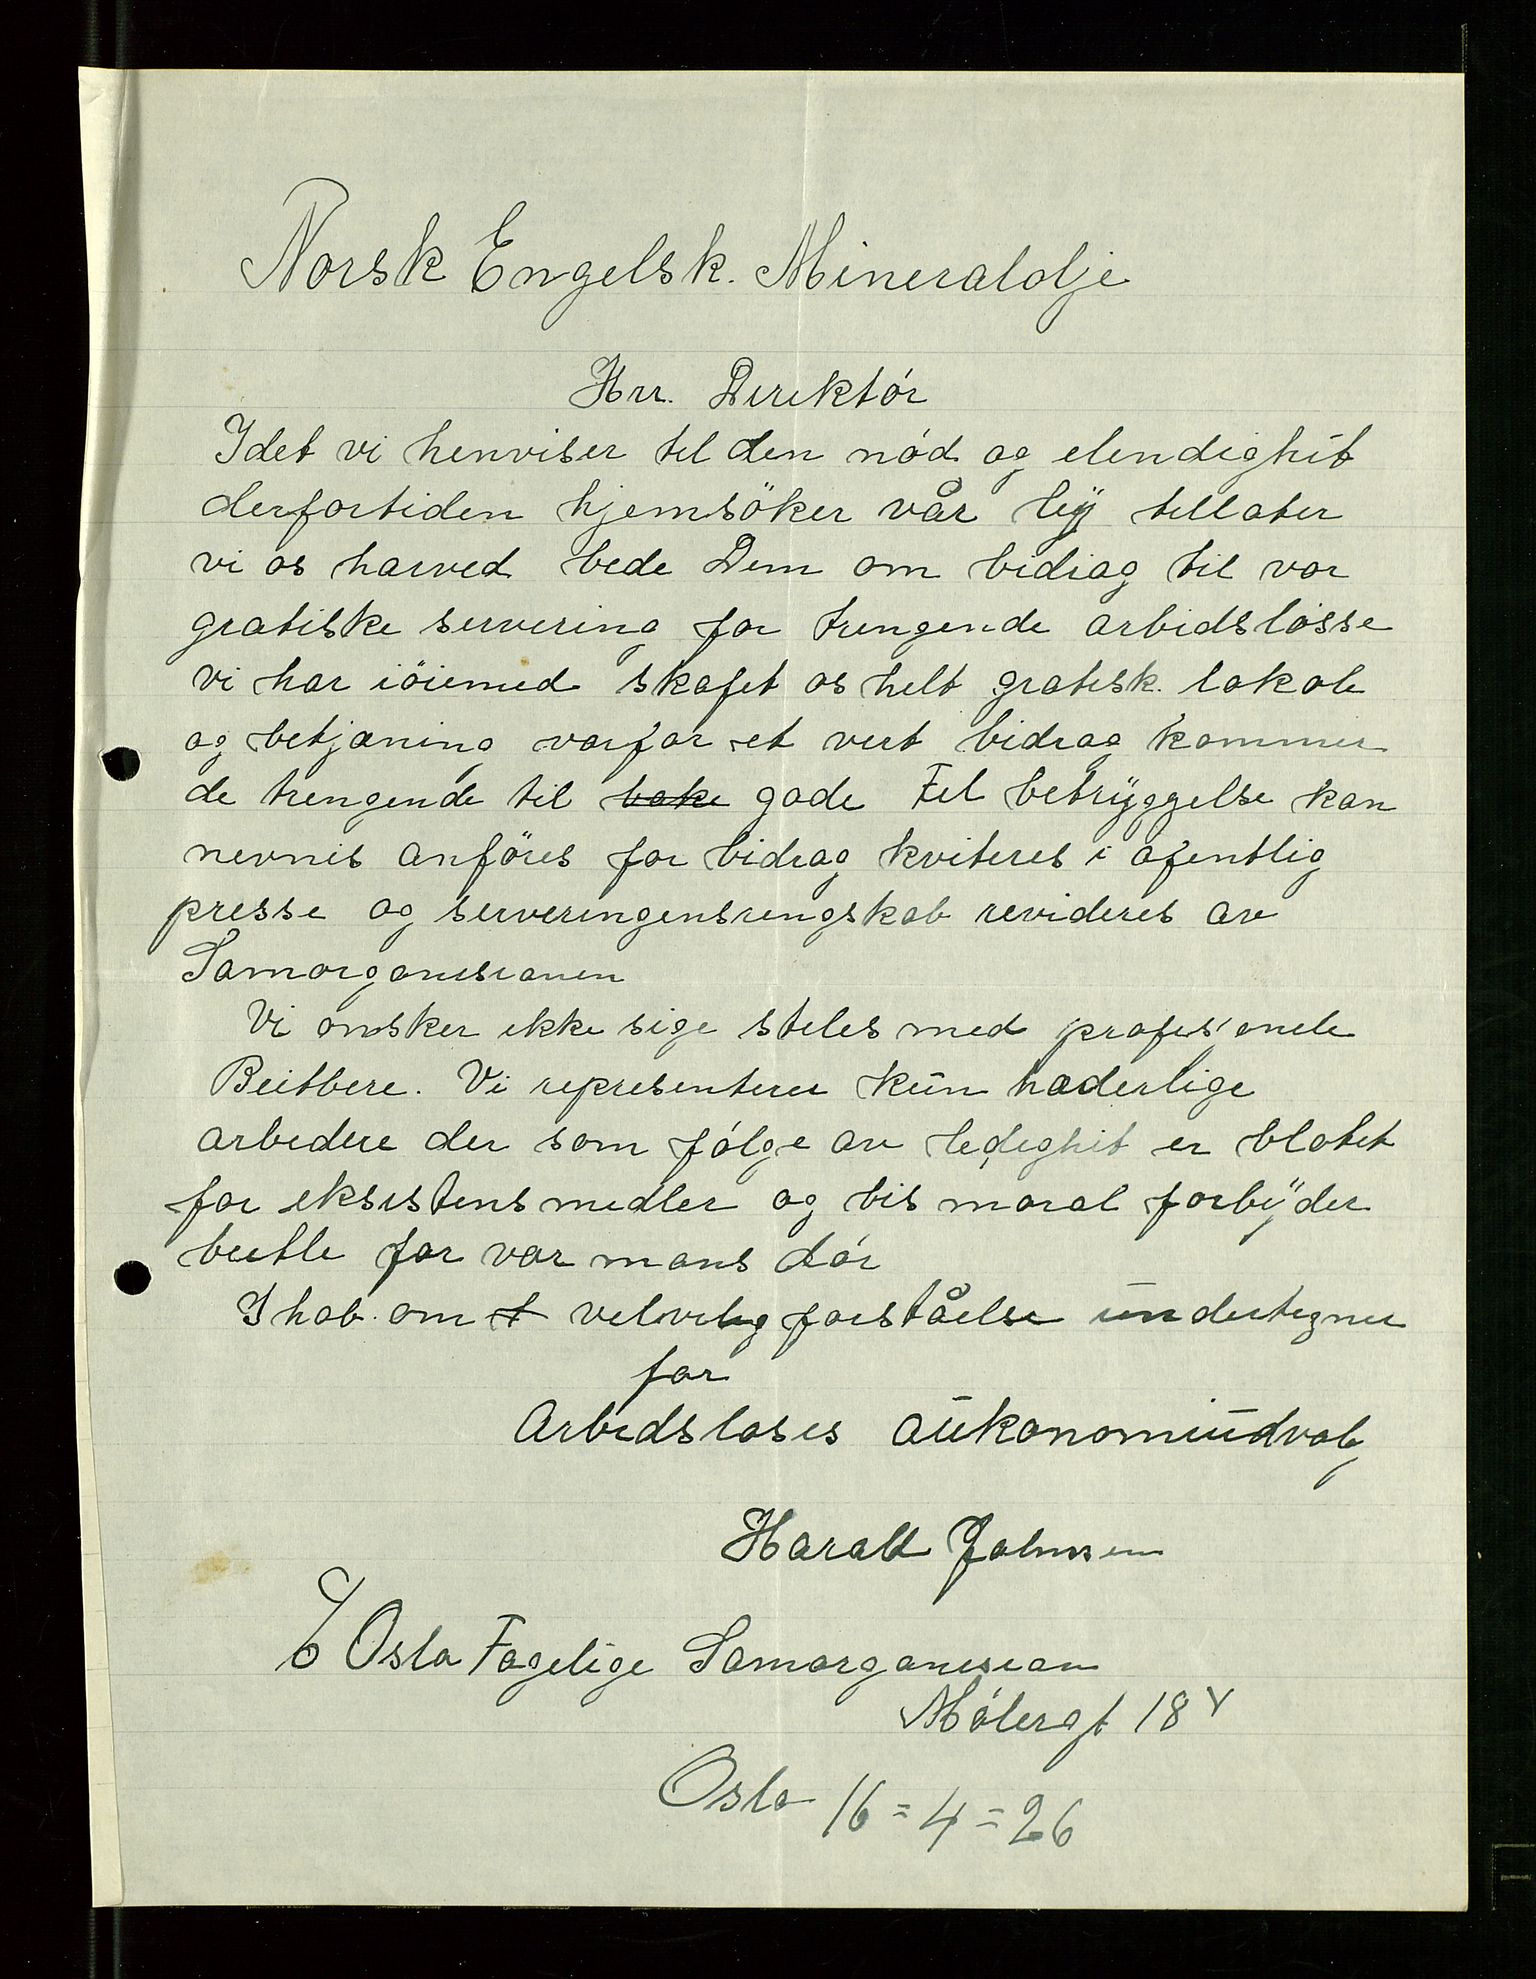 Norsk Engelsk. Mineralolje
Hrr. Direktór
Idet vi henviser til den nód og elendighit
derfortiden hjemsöker vår by tillater
vi os harved bede Dem om bidrag til vor
gratiske servering for trengende arbidslósse
vi har iöiemed skafet os helt gratisk. lokale
og betjæning varfor et vert bidrag kommer
de trengende til gode Til betryggelse kan
nevnis anföres for bidrag kviteres i ofentlig
presse og serveringensrengskab revideres av
Samorganisionen
Vi onsker ikke sige steles med profesionele
Beitbere. Vi representerer kun hæderlige
arbedere der som fólge av ledighit er blotet
for eksistensmedler og vis moral forbyder
beetle for vor mans dór
I hab om velvilig forståelse undertegner
for
Arbidsloses aukonomiudvalg
Harald Johnsen
Oslo Fagelige Samorganision
Mólergt 18 V
Oslo 16=4=26